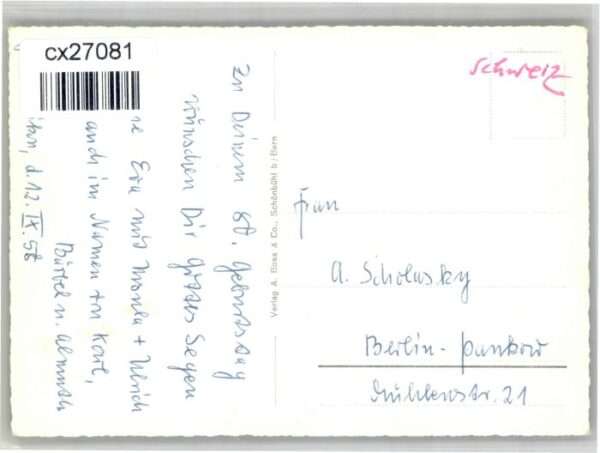 cx27081
Schweiz
Zu Deinem Geburtstag
wünschen Dir Gottes Segen
Eva mit Monika + Ulrich
auch im Namen von Karl,
Bärbel u. Almuth
d. 12. IX. 58
Verlag A. Boss & Co., Schönbühl b/Bern
Frau
A. Scholusky
Berlin-Pankow
Mühlenstr. 21